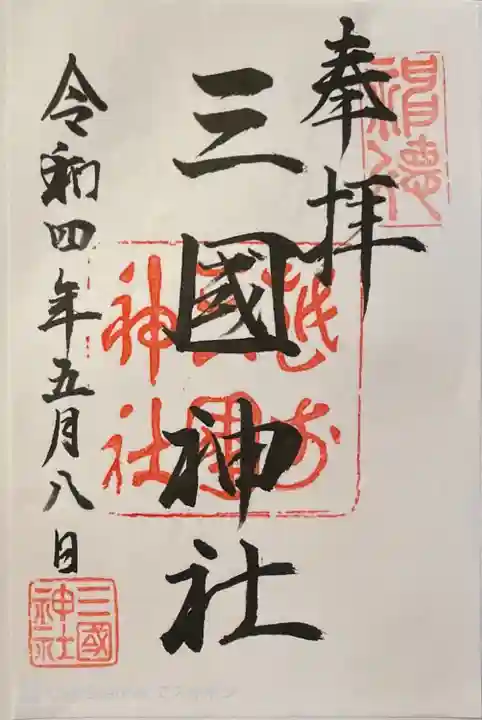 奉拝
三國神社
令和四年五月八日
越前
三國
神社
三國
神社